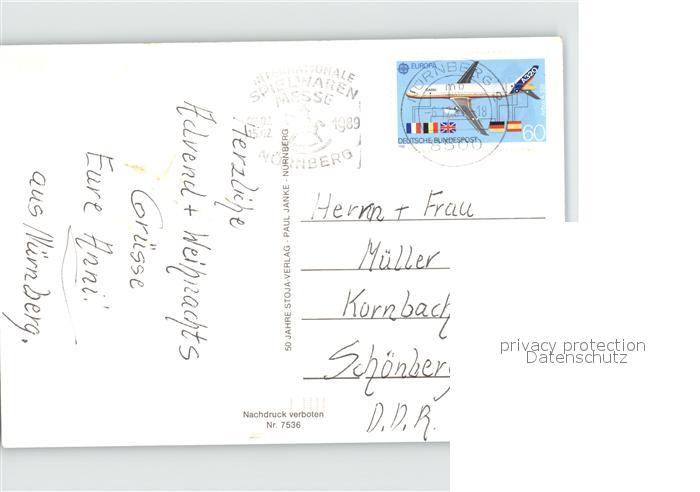 Herzliche
Advend + Weihnachts
Grüsse
Eure Anni!
aus Nürnberg.
50 JAHRE STOJA-VERLAG - PAUL JANKE - NÜRNBERG
Nachdruck verboten
Nr. 7536
INTERNATIONALE
SPIELWAREN
MESSE
1989
NÜRNBERG
EUROPA
A320
60
DEUTSCHE BUNDESPOST
NÜRNBERG
8500
Herrn + Frau
Müller
Kornbach
Schönberg
D.D.R.
privacy protection
Datenschutz